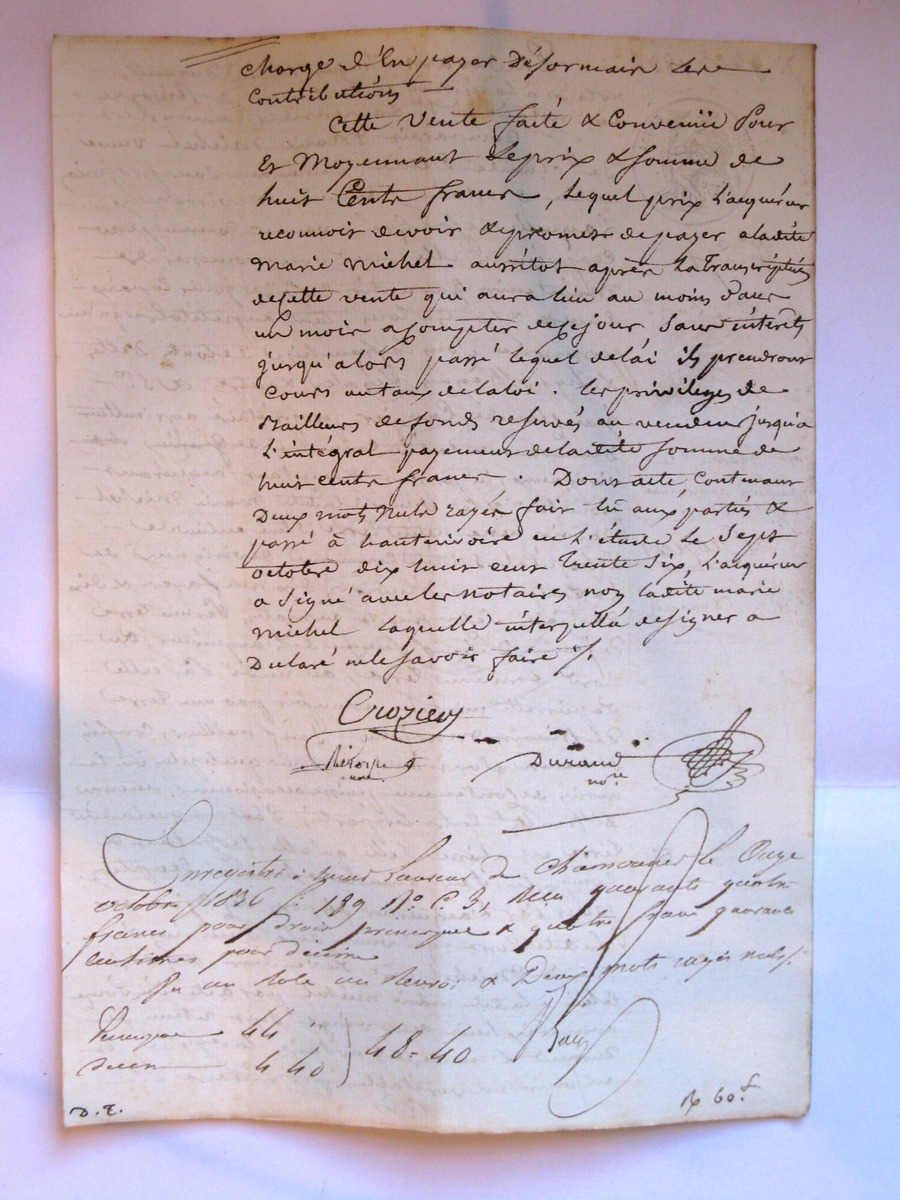 charge d'En payer Désormais les
Contributions
Cette Vente faite & Convenüe Pour
Et Moyennant le prix & somme de
huit Cents francs, lequel prix L'acquéreur
reconnoit devoir & promet de payer a ladite
Marie Michel aussitot après La Transcription
de cette vente qui aura lieu au moins dans
un mois a compter de ce jour Sans intérêts
jusqu'alors passé lequel délai ils prendront
Cours au taux de la loi. les privileges de
Bailleurs de fonds reservés au vendeur jusqu'a
L'intégral payement de ladite somme de
huit cents francs. Dont acte Contenant
Deux mots Nuls rayés fait lu aux parties &
passé à hauterivoire en L'étude Le Sept
octobre dix huit cent Trente Six, L'acquéreur
a Signé avec les notaires non ladite marie
Michel Laquelle interpellée de signer a
Déclaré ne le savoir faire ./.
Crozier
not
Durand
nore
Enregistré à Saint Laurent de Chamousset le Onze
octobre 1836 f. 189 Ro C. 3, Reçu quarante quatre
francs pour droit principal & quatre francs quarante
centimes pour décime
un Rôle un Renvoi & Deux mots rayés nuls ./.
Principal 44 "
décime 4 40 } 48-40
D. E.
60 f